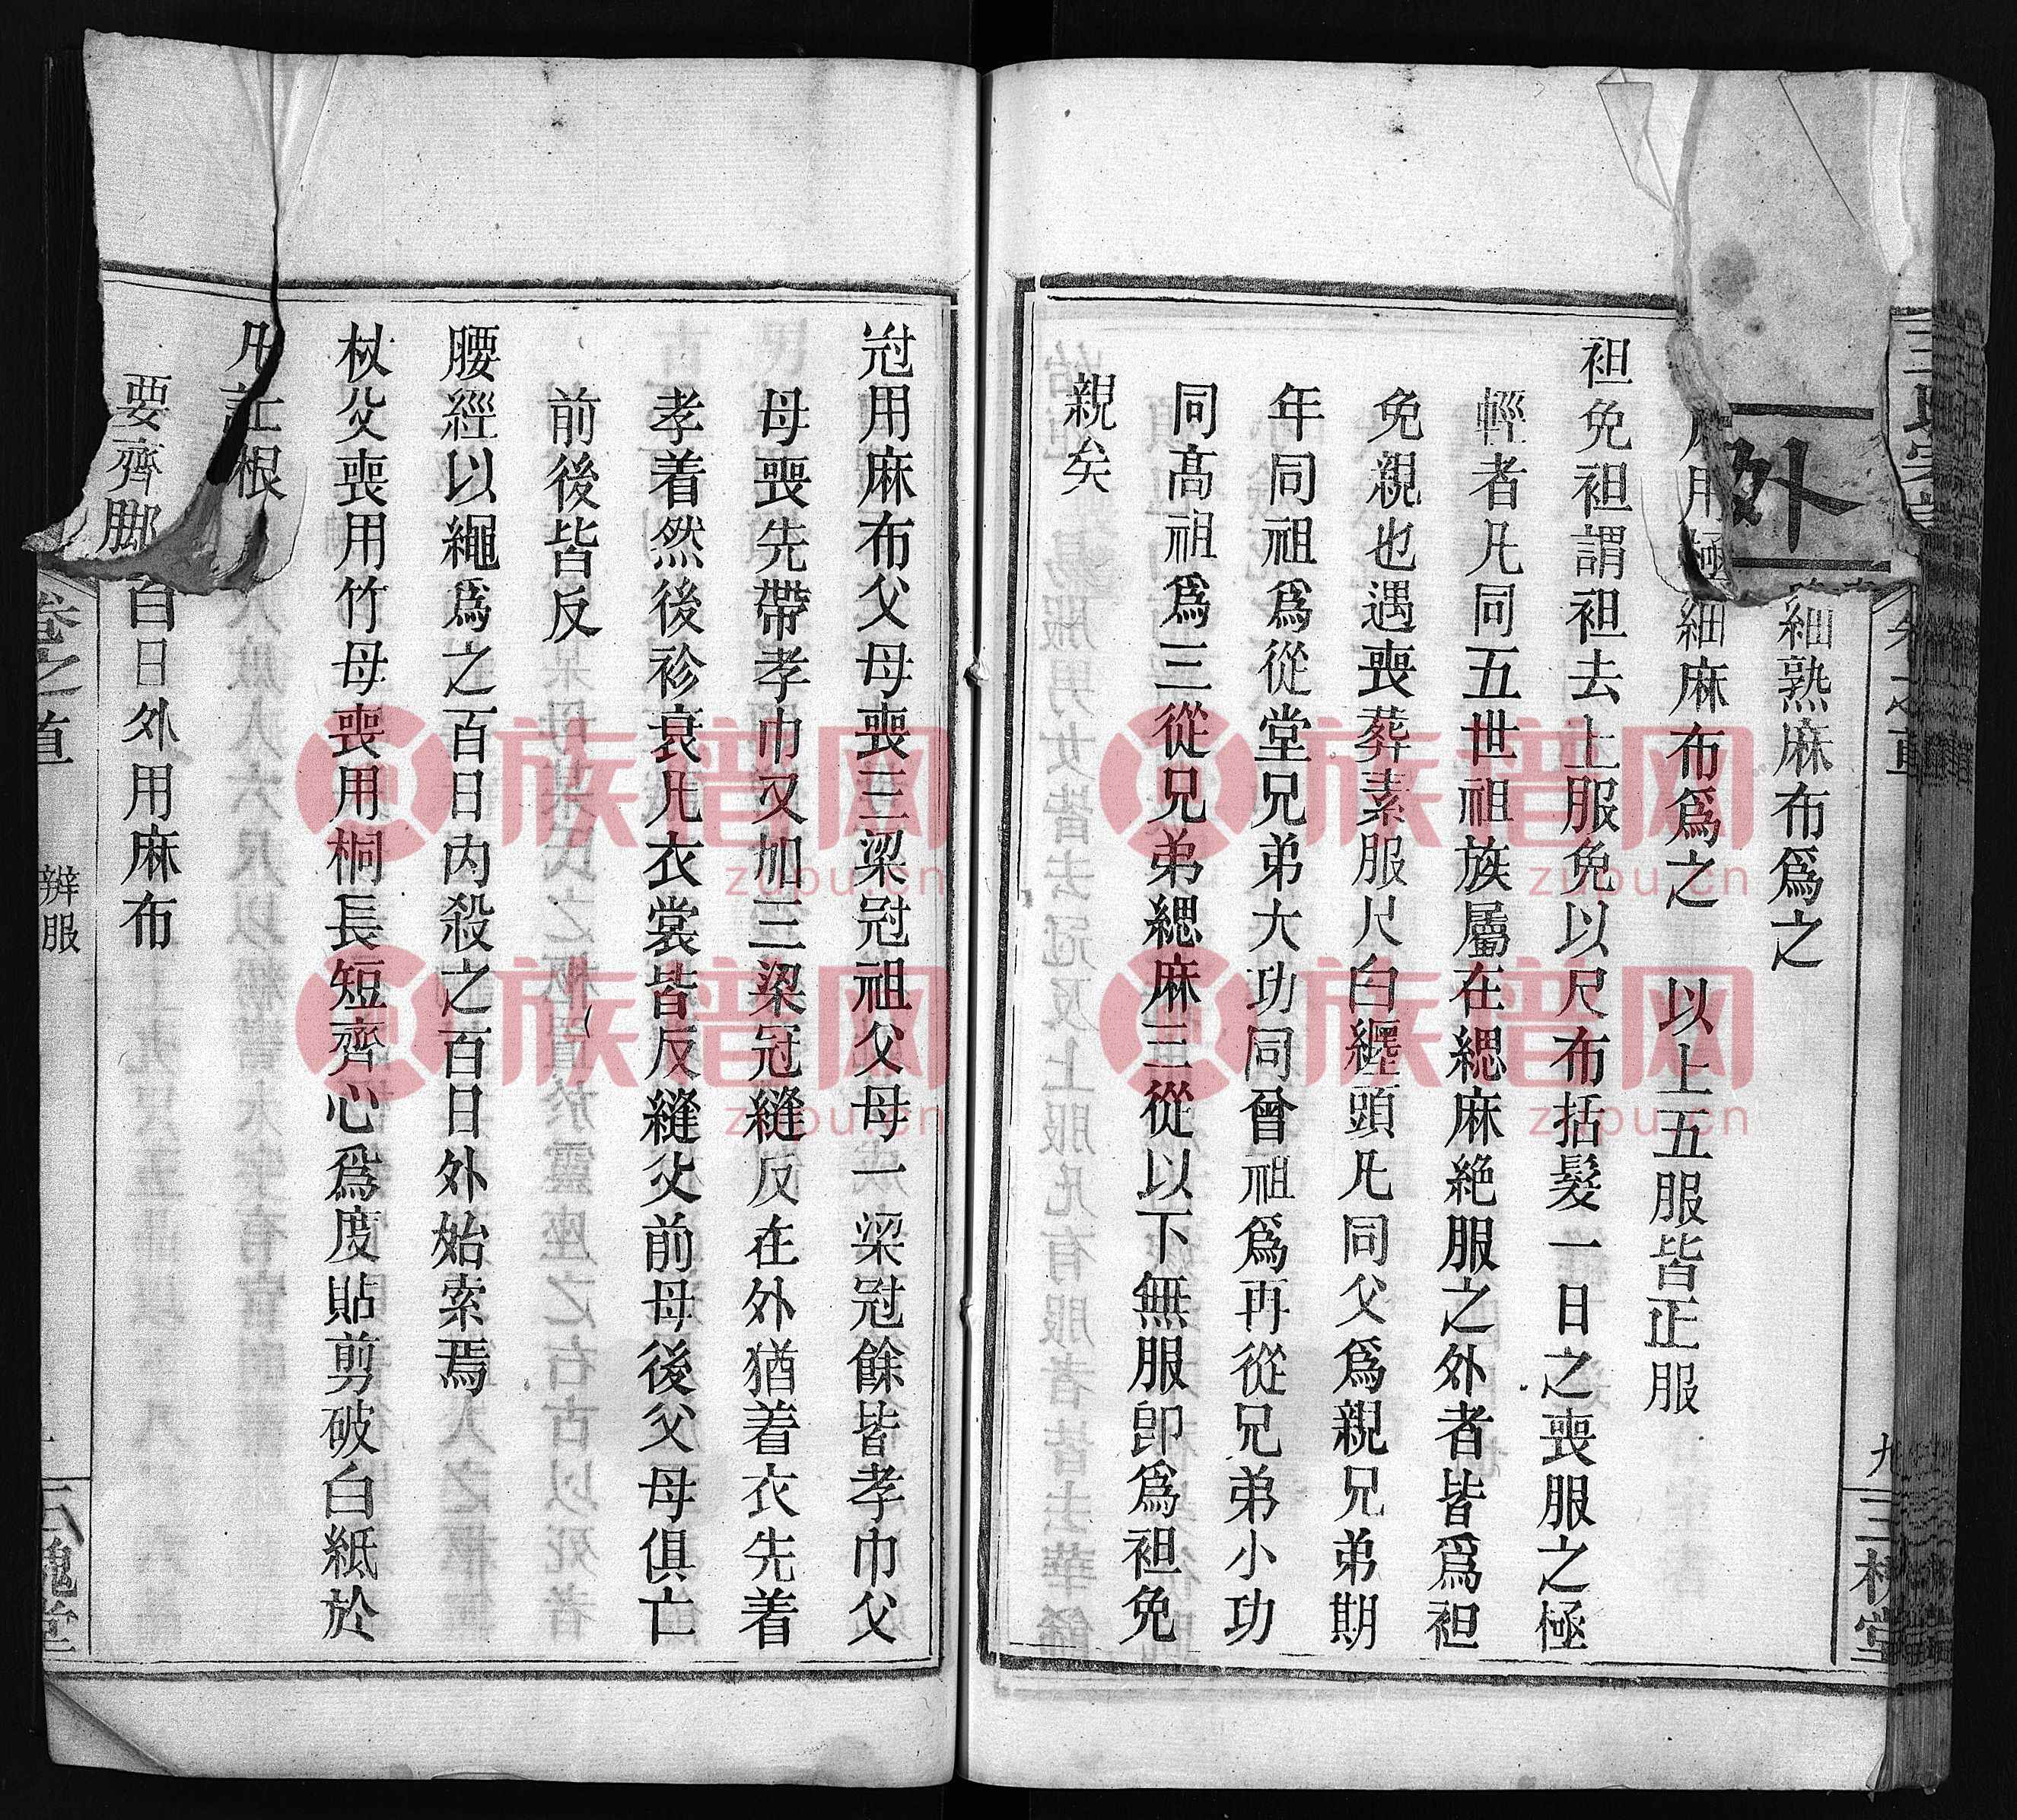 卷之首
九
三槐堂
外
細熟麻布爲之
用極細麻布爲之 以上五服皆正服
袒免袒謂袒去上服免以尺布括髮一日之喪服之極
輕者凡同五世祖族屬在緦麻絶服之外者皆爲袒
免親也遇喪葬素服尺白纏頭凡同父爲親兄弟期
年同祖爲從堂兄弟大功同曾祖爲再從兄弟小功
同高祖爲三從兄弟緦麻三從以下無服卽爲袒免
親矣
冠用麻布父母喪三梁冠祖父母一梁冠餘皆孝巾父
母喪先帶孝巾又加三梁冠縫反在外猶着衣先着
孝着然後衫衰凡衣裳皆反縫父前母後父母俱亡
前後皆反
腰經以繩爲之百日内殺之百日外始索焉
杖父喪用竹母喪用桐長短齊心爲度貼剪破白紙於
根
要齊脚百日外用麻布
卷之首
辨服
三槐堂
族谱网
zupu.cn
族谱网
zupu.cn
族谱网
zupu.cn
族谱网
zupu.cn